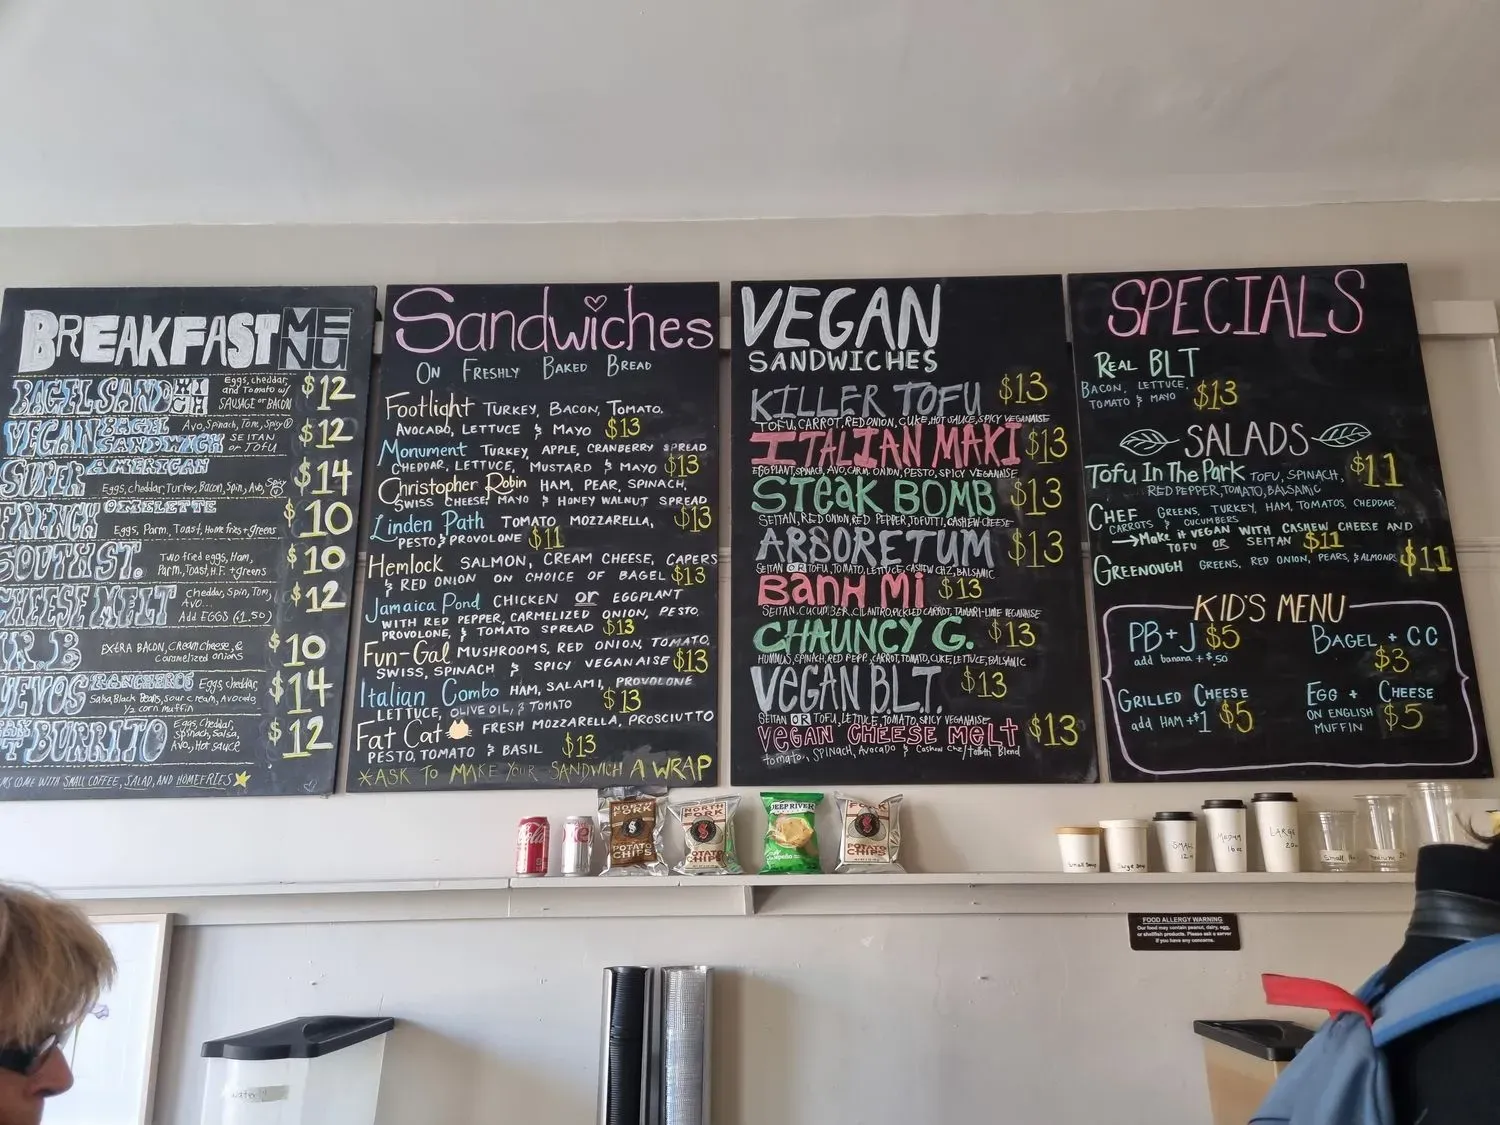 BREAKFAST MENU
BAGEL SANDWICH Eggs, cheddar, $12
and Tomato w/
SAUSAGE or BACON
VEGAN BAGEL SANDWICH Avo, Spinach, Tom, Spicy V $12
SEITAN
or TOFU
SUPER AMERICAN $14
Eggs, cheddar, Turkey, Bacon, Spin, Avo, Spicy V
FRENCH OMELETTE $10
Eggs, Parm, Toast, Home fries + greens
SOUTH ST. Two fried eggs, Ham, $10
Parm, Toast, H.F. + greens
CHEESE MELT Cheddar, Spin, Tom, $12
Avo...
Add EGGS (1.50)
R. B EXTRA BACON, CREAM CHEESE, & $10
Caramelized onions
EVOS RANCHEROS Eggs, cheddar, $14
Salsa, Black Beans, sour cream, Avocado,
1/2 corn muffin
BURRITO Eggs, Cheddar, $12
Spinach, Salsa,
Avo, Hot sauce
MS COME WITH SMALL COFFEE, SALAD, AND HOMEFRIES
Sandwiches
ON FRESHLY BAKED BREAD
Footlight TURKEY, BACON, TOMATO,
AVOCADO, LETTUCE & MAYO $13
Monument TURKEY, APPLE, CRANBERRY SPREAD
CHEDDAR, LETTUCE, MUSTARD & MAYO $13
Christopher Robin HAM, PEAR, SPINACH,
SWISS CHEESE, MAYO & HONEY WALNUT SPREAD
$13
Linden Path TOMATO MOZZARELLA,
PESTO & PROVOLONE $11
Hemlock SALMON, CREAM CHEESE, CAPERS
& RED ONION ON CHOICE OF BAGEL $13
Jamaica Pond CHICKEN or EGGPLANT
WITH RED PEPPER, CARMELIZED ONION, PESTO,
PROVOLONE, & TOMATO SPREAD $13
Fun-Gal MUSHROOMS, RED ONION, TOMATO,
SWISS, SPINACH & SPICY VEGANAISE $13
Italian Combo HAM, SALAMI, PROVOLONE
LETTUCE, OLIVE OIL, & TOMATO $13
Fat Cat FRESH MOZZARELLA, PROSCIUTTO
PESTO, TOMATO & BASIL $13
*ASK TO MAKE YOUR SANDWICH A WRAP
VEGAN
SANDWICHES
KILLER TOFU $13
TOFU, CARROT, RED ONION, CUKE, HOT SAUCE, SPICY VEGANAISE
ITALIAN MAKI $13
EGGPLANT, SPINACH, AVO, CARM. ONION, PESTO, SPICY VEGANAISE
STEAK BOMB $13
SEITAN, RED ONION, RED PEPPER, TOFUTTI, CASHEW CHEESE
ARBORETUM $13
SEITAN OR TOFU, TOMATO, LETTUCE, CASHEW CHZ, BALSAMIC
BANH Mi $13
SEITAN, CUCUMBER, CILANTRO, PICKLED CARROT, TAMARI-LIME VEGANAISE
CHAUNCY G. $13
HUMMUS, SPINACH, RED PEPP, CARROT, TOMATO, CUKE, LETTUCE, BALSAMIC
VEGAN B.L.T. $13
SEITAN OR TOFU, LETTUCE, TOMATO, SPICY VEGANAISE
VEGAN CHEESE MELT $13
Tomato, Spinach, Avocado & Cashew Chz/Tofutti Blend
SPECIALS
REAL BLT
BACON, LETTUCE, $13
TOMATO & MAYO
SALADS
Tofu In The Park TOFU, SPINACH, $11
RED PEPPER, TOMATO, BALSAMIC
CHEF GREENS, TURKEY, HAM, TOMATOS, CHEDDAR,
CARROTS & CUCUMBERS
Make it VEGAN WITH CASHEW CHEESE AND
TOFU OR SEITAN $11
GREENOUGH GREENS, RED ONION, PEARS, & ALMONDS $11
KID'S MENU
PB + J $5
add banana + $.50
BAGEL + CC
$3
GRILLED CHEESE
add HAM +$1 $5
EGG + CHEESE
ON ENGLISH
MUFFIN $5
Coca-Cola
NORTH FORK
POTATO CHIPS
NORTH FORK
POTATO CHIPS
DEEP RIVER
Jalapeño
FORK
POTATO CHIPS
Small Soup
Large Soup
SMALL
12oz
MEDIUM
16oz
LARGE
20oz
Small
Medium
FOOD ALLERGY WARNING
Our food may contain peanut, dairy, egg,
or shellfish products. Please ask a server
if you have any concerns.
Water